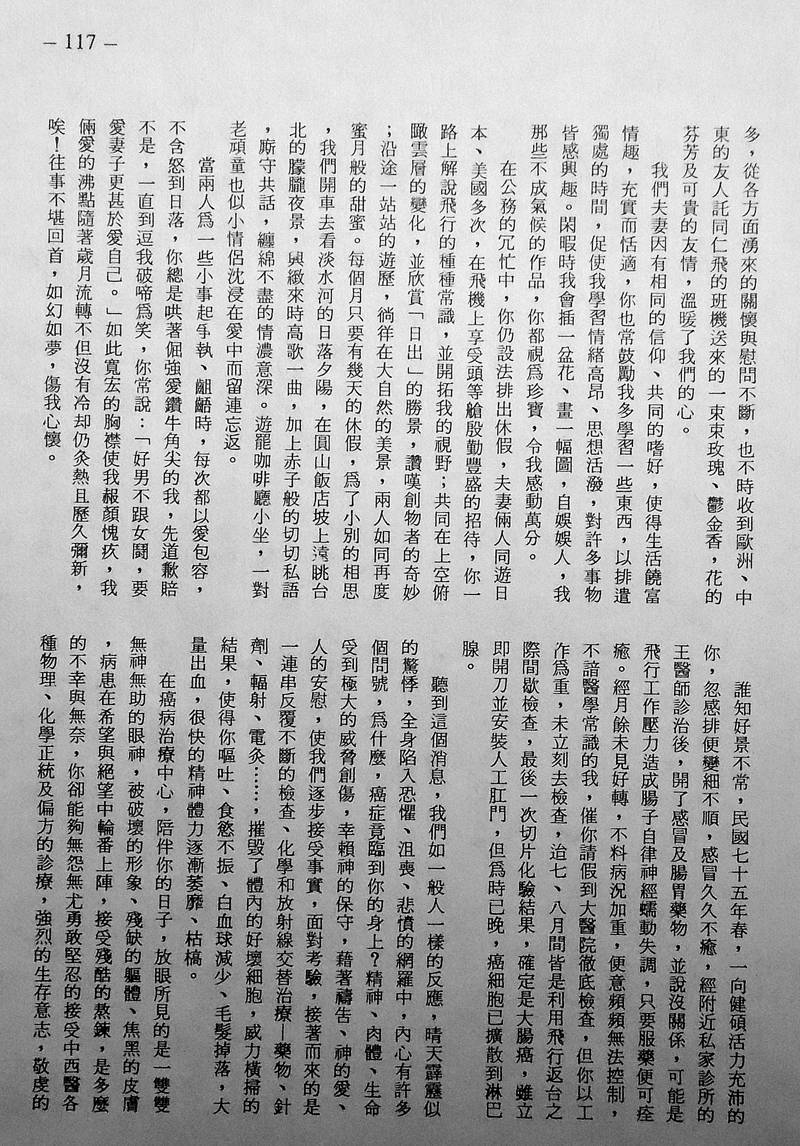 – 117 –
多，從各方面湧來的關懷與慰問不斷，也不時收到歐洲、中
東的友人託同仁飛的班機送來的一束束玫瑰、鬱金香，花的
芬芳及可貴的友情，溫暖了我們的心。
我們夫妻因有相同的信仰、共同的嗜好，使得生活饒富
情趣，充實而恬適，你也常鼓勵我多學習一些東西，以排遣
獨處的時間，促使我學習情緒高昂、思想活潑，對許多事物
皆感興趣。閑暇時我會插一盆花、畫一幅圖，自娛娛人，我
那些不成氣候的作品，你都視爲珍寶，令我感動萬分。
在公務的冗忙中，你仍設法排出休假，夫妻倆人同遊日
本、美國多次，在飛機上享受頭等艙殷勤豐盛的招待，你一
路上解說飛行的種種常識，並開拓我的視野；共同在上空俯
瞰雲層的變化，並欣賞「日出」的勝景，讚嘆創物者的奇妙
；沿途一站站的遊歷，徜徉在大自然的美景，兩人如同再度
蜜月般的甜蜜。每個月只要有幾天的休假，爲了小別的相思
，我們開車去看淡水河的日落夕陽，在圓山飯店坡上遠眺台
北的朦朧夜景，興緻來時高歌一曲，加上赤子般的切切私語
，廝守共話，纏綿不盡的情濃意深。遊罷咖啡廳小坐，一對
老頑童也似小情侶沈浸在愛中而留連忘返。
當兩人爲一些小事起爭執、齟齬時，每次都以愛包容，
不含怒到日落，你總是哄著倔強愛鑽牛角尖的我，先道歉賠
不是，一直到逗我破啼爲笑，你常說：「好男不跟女鬪，要
愛妻子更甚於愛自己。」如此寬宏的胸襟使我赧顏愧疚，我
倆愛的沸點隨著歲月流轉不但沒有冷却仍灸熱且歷久彌新，
唉！往事不堪回首，如幻如夢，傷我心懷。
誰知好景不常，民國七十五年春，一向健碩活力充沛的
你，忽感排便變細不順，感冒久久不癒，經附近私家診所的
王醫師診治後，開了感冒及腸胃藥物，並說沒關係，可能是
飛行工作壓力造成腸子自律神經蠕動失調，只要服藥便可痊
癒。經月餘未見好轉，不料病況加重，便意頻頻無法控制，
不諳醫學常識的我，催你請假到大醫院徹底檢查，但你以工
作爲重，未立刻去檢查，迨七、八月間皆是利用飛行返台之
際間歇檢查，最後一次切片化驗結果，確定是大腸癌，雖立
即開刀並安裝人工肛門，但爲時已晚，癌細胞已擴散到淋巴
腺。
聽到這個消息，我們如一般人一樣的反應，晴天霹靂似
的驚悸，全身陷入恐懼、沮喪、悲憤的網羅中，內心有許多
個問號，爲什麼，癌症竟臨到你的身上？精神、肉體、生命
受到極大的威脅創傷，幸賴神的保守，藉著禱告、神的愛、
人的安慰，使我們逐步接受事實，面對考驗，接著而來的是
一連串反覆不斷的檢查、化學和放射線交替治療—藥物、針
劑、輻射、電灸……，摧毀了體內的好壞細胞，威力橫掃的
結果，使得你嘔吐、食慾不振、白血球減少、毛髮掉落，大
量出血，很快的精神體力逐漸萎靡、枯槁。
在癌病治療中心，陪伴你的日子，放眼所見的是一雙雙
無神無助的眼神，被破壞的形象、殘缺的軀體、焦黑的皮膚
，病患在希望與絕望中輪番上陣，接受殘酷的熬鍊，是多麼
的不幸與無奈，你卻能夠無怨無尤勇敢堅忍的接受中西醫各
種物理、化學正統及偏方的診療，強烈的生存意志，敬虔的